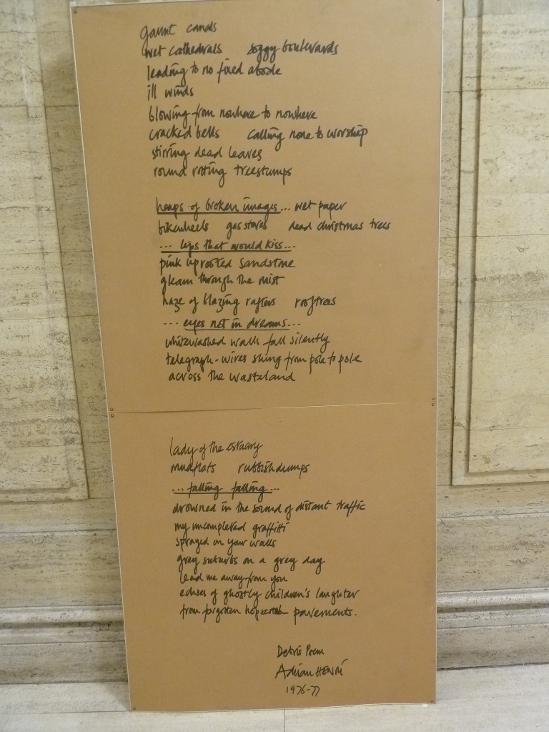 gaunt
wet cathedrals soggy boulevards
leading to no fixed abode
ill winds
blowing from nowhere to nowhere
cracked bells calling none to worship
stirring dead leaves
round rotting treestumps
heaps of broken images... wet paper
bikewheels gasstoves dead christmas trees
... lips that would kiss...
pink uprooted sandstone
gleam through the mist
haze of blazing rafters rooftrees
... eyes not in dreams...
whitewashed walls fall silently
telegraph-wires swing from pole to pole
across the wasteland
lady of the estuary
mudflats rubbishdumps
... falling falling...
drowned in the sound of distant traffic
my uncompleted graffitti
sprayed on your walls
grey suburbs on a grey day
lead me away from you
echoes of ghostly children's laughter
from forgotten hopscotch pavements.
Debris Poem
Adrian HENRI
1976-77